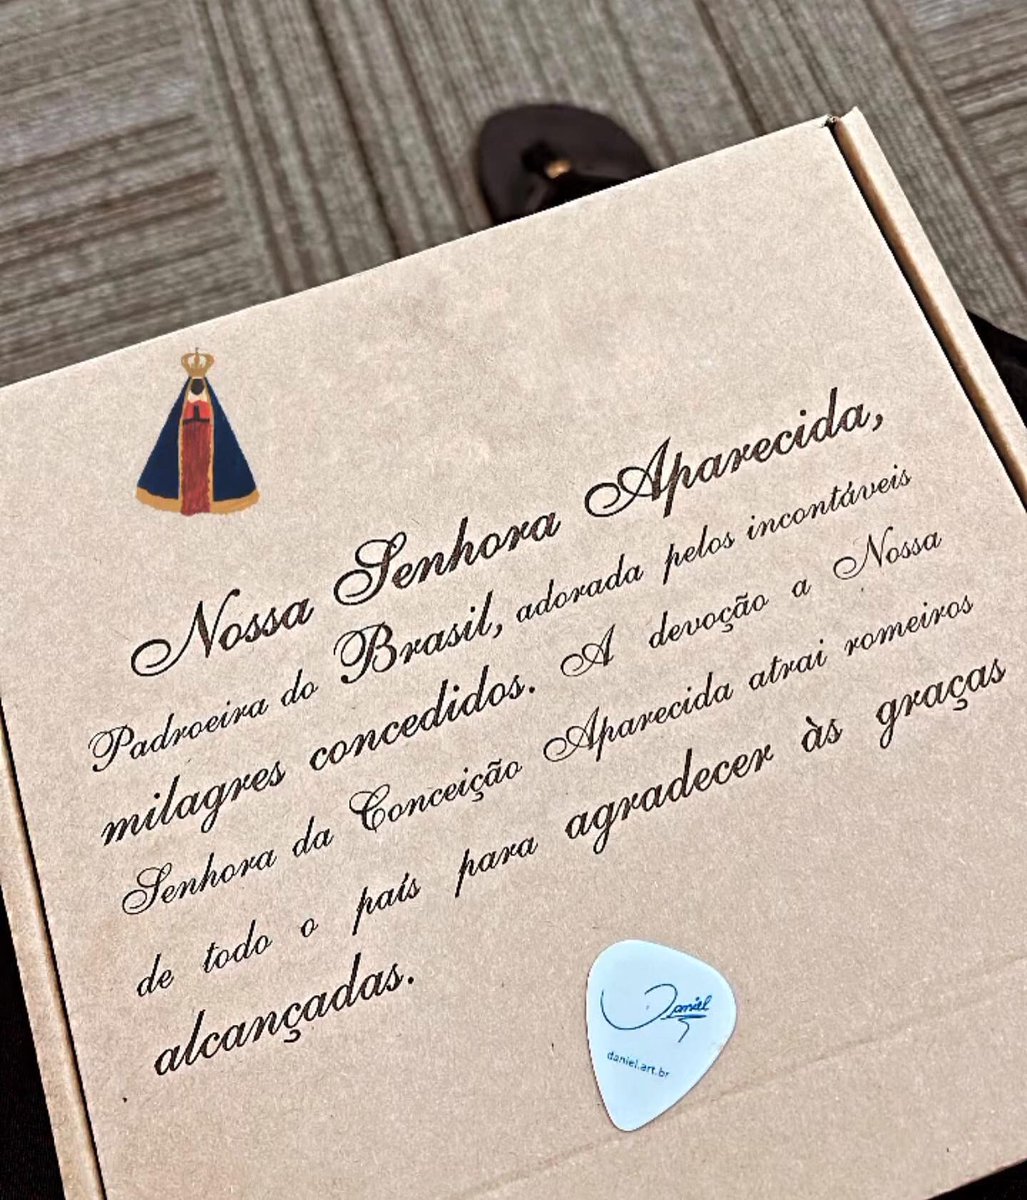 Nossa Senhora Aparecida,
Padroeira do Brasil, adorada pelos incontáveis
milagres concedidos. A devoção a Nossa
Senhora da Conceição Aparecida atrai romeiros
de todo o país para agradecer às graças
alcançadas.
Daniel
daniel.art.br